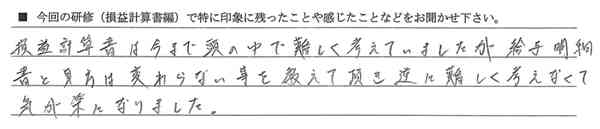 ■ 今回の研修（損益計算書編）で特に印象に残ったことや感じたことなどをお聞かせ下さい。
損益計算書は今まで頭の中で難しく考えていましたが給与明細
書と見方は変わらない事を教えて頂き逆に難しく考えなくて
気が楽になりました。